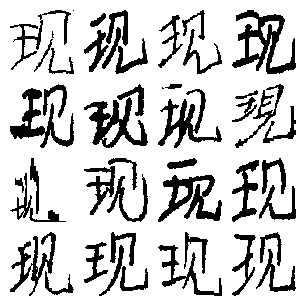 现现现现
现现现現
现现现现
现现现现